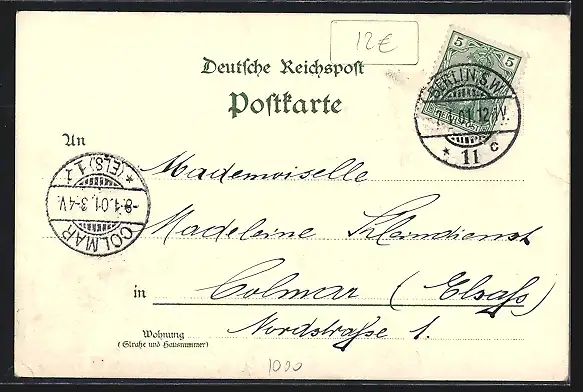 12€
5 5
BERLIN S.W.
1.01. 12 V.
* 11 c
Deutsche Reichspost
Postkarte
An
Mademoiselle
*(ELS.) 1 z
-8.1.01. 3-4 V.
COLMAR
Madeleine Kleindienst
in Colmar (Elsaß)
Nordstraße 1.
Wohnung
(Straße und Hausnummer)
1000